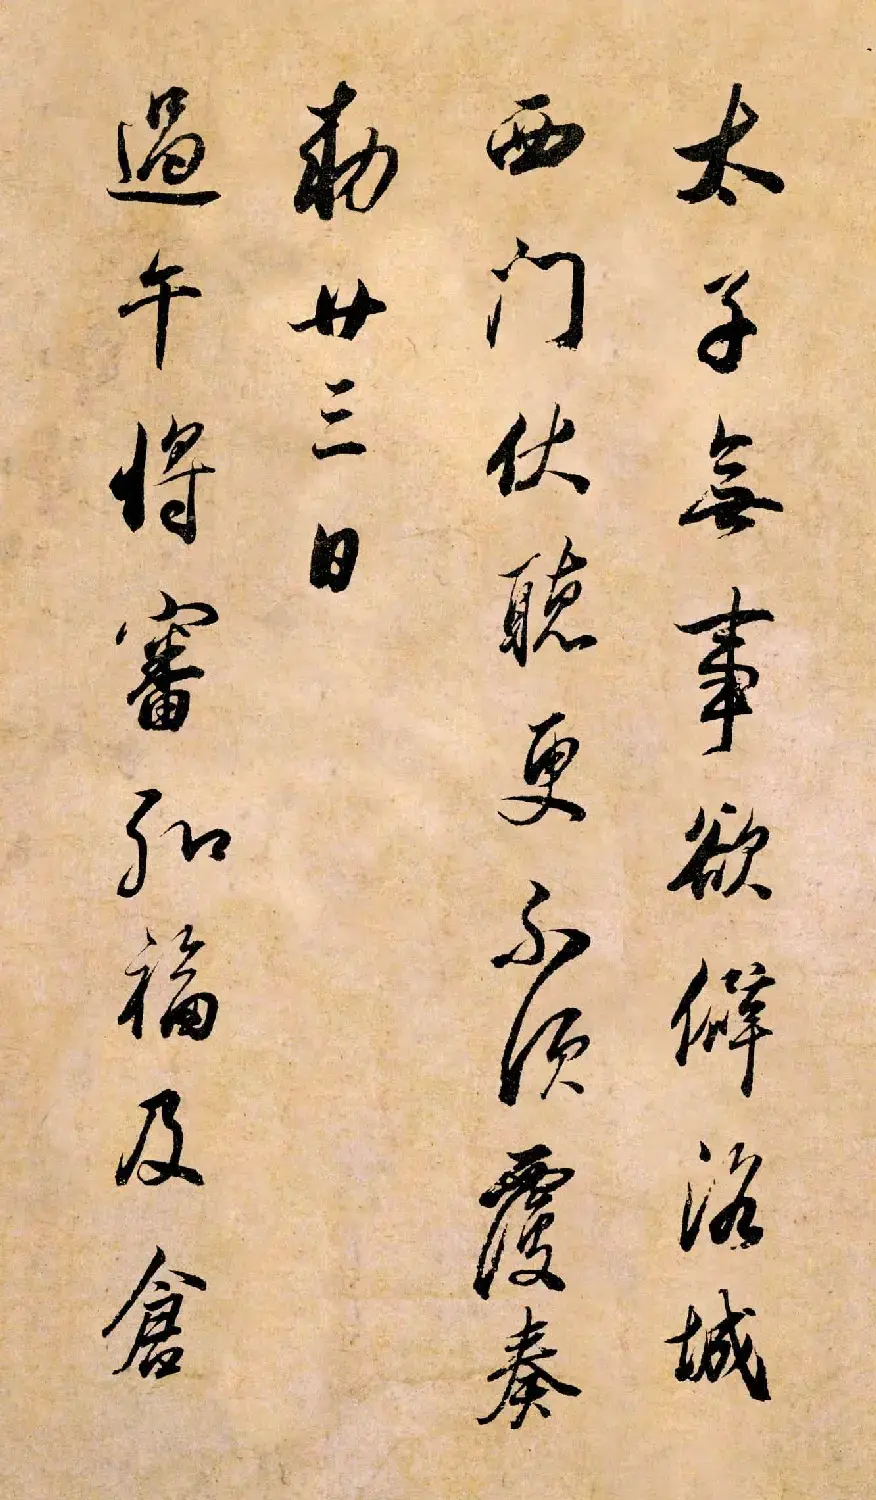 太子無事欲僻洛城
西门伏聽更不須覆奏
勅廿三日
過午將審弘福及倉